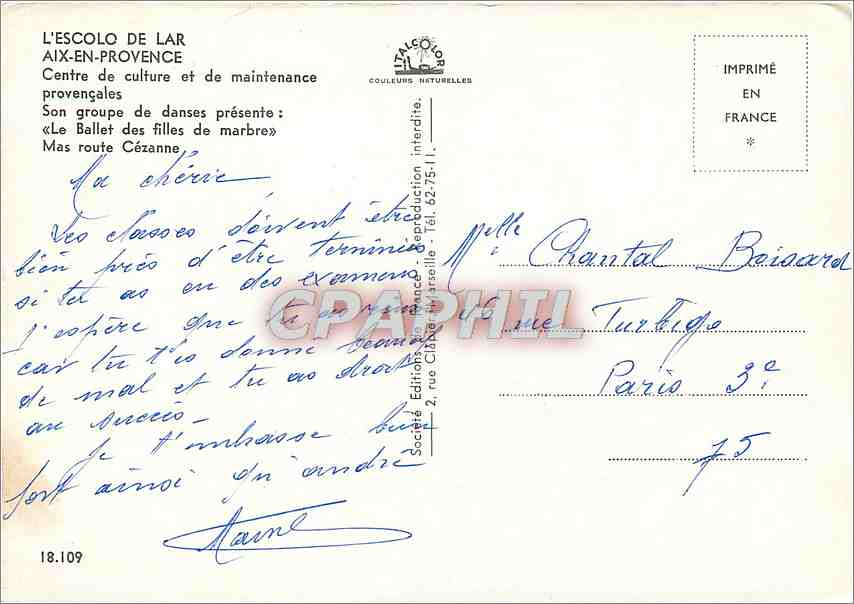 L'ESCOLO DE LAR
AIX-EN-PROVENCE
Centre de culture et de maintenance
provençales
Son groupe de danses présente :
«Le Ballet des filles de marbre»
Mas route Cézanne
ITALCOLOR
COULEURS NATURELLES
IMPRIMÉ
EN
FRANCE
*
Ma chérie
Les classes doivent être
bien près d'être terminées
si tu as eu des examens
j'espère que tu as
car tu t'es donné
de mal et tu as droit
au succès -
je t'embrasse bien
fort ainsi qu'andré
18.109
Société Editions de France - Reproduction interdite.
2, rue Clapier Marseille - Tél. 62-75-11.
Melle Chantal Boisard
46 rue Turbigo
Paris 3e
75
CPAPHIL